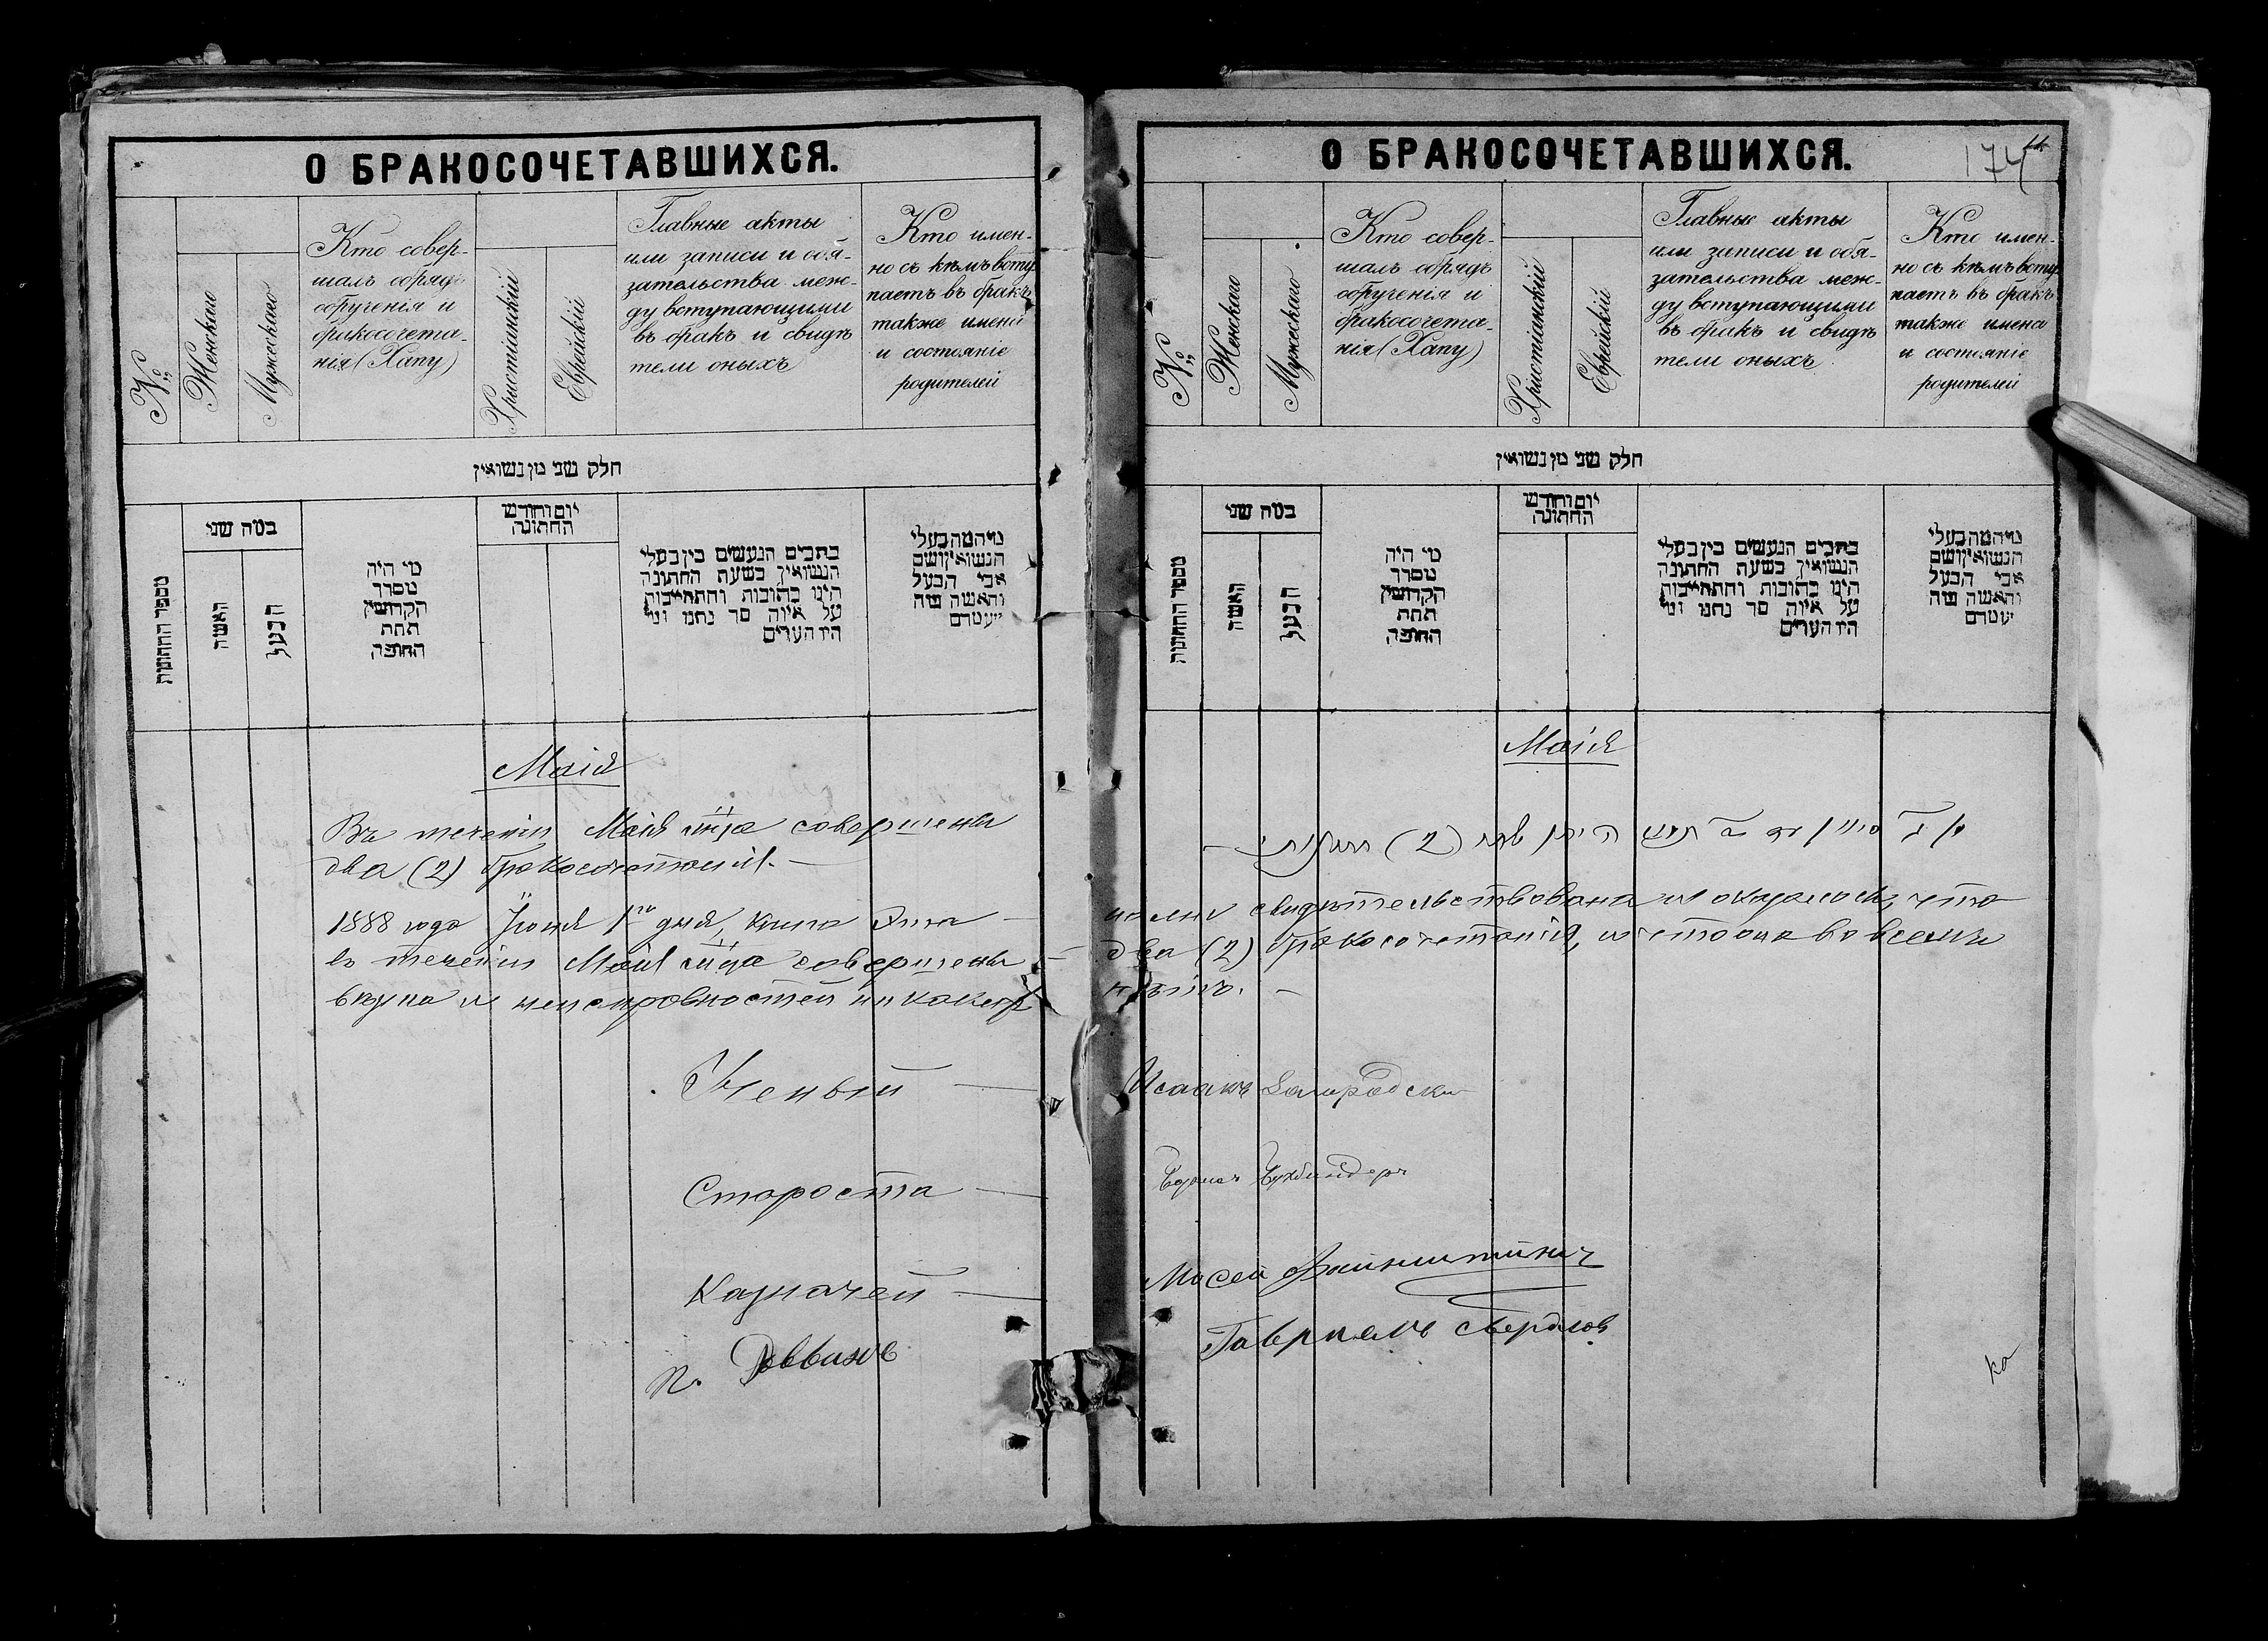 О БРАКОСОЧЕТАВШИХСЯ.
№
Женскаго
Мужескаго
Кто совер-
шалъ обрядъ
обрученія и
бракосочета-
нія (Хапу)
Христіанскій
Еврейскій
Главные акты
или записи и обя-
зательства меж-
ду вступающими
въ бракъ и свидѣ
тели оныхъ
Кто имен-
но съ кѣмъ всту
паетъ въ бракъ
также имена
и состояніе
родителей
חלק שני מן נשואין
מספר החתונות
בטה שני
האשה
הבעל
מי היה
מסדר
הקדושין
תחת
החופה
יום וחודש
החתונה
כתבים הנעשים בין בעלי
הנשואין בשעת החתונה
היינו כתובות והתחייבות
על איזה סך נתנו ומי
היו העדים
הנשואין ושם
אבי הבעל
והאשה
Маія
Въ теченіи Маія м-ца совершены
два (2) бракосочетанія. —
1888 года Іюня 1го дня, книга эта —
въ теченіи Маія м-ца совершены —
вкупа и неисправностей никаких
Ученый —
Староста —
Казначей —
п. Раввинъ
О БРАКОСОЧЕТАВШИХСЯ.
174
№
Женскаго
Мужескаго
Кто совер-
шалъ обрядъ
обрученія и
бракосочета-
нія (Хапу)
Христіанскій
Еврейскій
Главные акты
или записи и обя-
зательства меж-
ду вступающими
въ бракъ и свидѣ
тели оныхъ
Кто имен-
но съ кѣмъ всту
паетъ въ бракъ
также имена
и состояніе
родителей
חלק שני מן נשואין
מספר החתונות
בטה שני
האשה
הבעל
מי היה
מסדר
הקדושין
תחת
החופה
יום וחודש
החתונה
כתבים הנעשים בין בעלי
הנשואין בשעת החתונה
היינו כתובות והתחייבות
על איזה סך נתנו ומי
היו העדים
הנשואין ושם
אבי הבעל
והאשה
Маія
(2)
нами свидѣтельствована и оказалось, что
два (2) бракосочетанія, и итого во всемъ
нѣтъ. —
Исаакъ Загородски
Букбиндеръ
Мосей Файнштейнъ
Гавриель Свердлов
ка